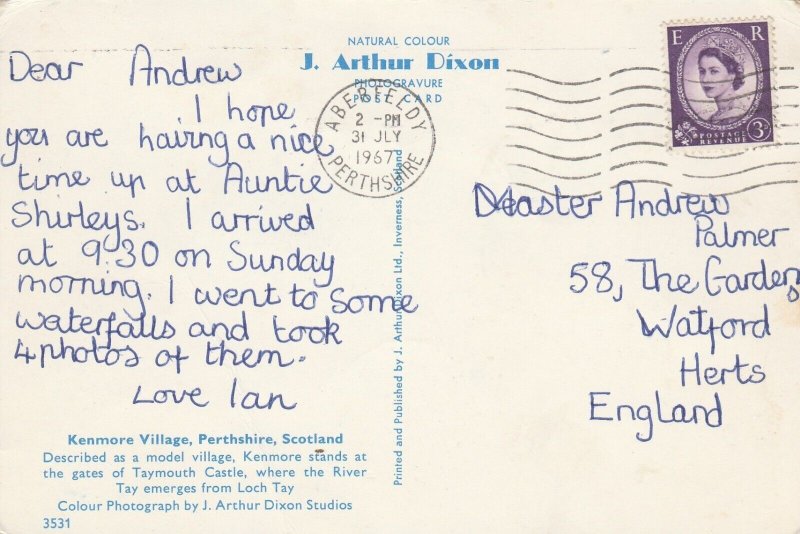 NATURAL COLOUR
J. Arthur Dixon
PHOTOGRAVURE
POST CARD
Dear Andrew
I hope
you are hairng a nice
time up at Auntie
Shirleys. I arrived
at 9.30 on Sunday
morning. I went to some
waterfalls and took
4 photos of them.
Love Ian
Kenmore Village, Perthshire, Scotland
Described as a model village, Kenmore stands at
the gates of Taymouth Castle, where the River
Tay emerges from Loch Tay
Colour Photograph by J. Arthur Dixon Studios
3531
Printed and Published by J. Arthur Dixon Ltd., Inverness, Scotland
ABERFELDY
2 - PM
31 JLY
1967
PERTHSHIRE
E R
POSTAGE
REVENUE
3D
Master Andrew
Palmer
58, The Gardens
Watford
Herts
England